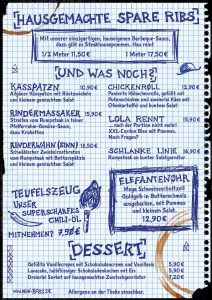 HAUSGEMACHTE SPARE RIBS
Mit unserer einzigartigen, hauseigenen Barbeque-Sauce,
dazu gibt es Steakhousepommes. Hau rein!
1/2 Meter 11,50€ 1 Meter 17,50€
UND WAS NOCH?
KÄSSPATZN 10,90€
Allgäuer Kässpatzen mit Röstzwiebeln
und kleinem gemischten Salat
RINDERMASSAKER 15,90€
Streifen vom Rumpsteak in feiner
Pfefferrahm-Gemüse-Sauce,
dazu Kroketten
RINDERWAHN (SINN) 18,50€
Schwäbischer Zwiebelrostbraten
vom Rumpsteak mit Butterspätzle
und kleinem gemischten Salat
CHICKENROLL 12,90€
Panierte Hähnchenrolle, gefüllt mit
Putenschinken und zweierlei Käse mit
Ofenkartoffel und buntem Salat
LOLA RENNT 15,90€
... nach der Portion nicht mehr!
XXL-Cordon Bleu mit Pommes.
Noch Fragen?
SCHLANKE LINIE 16,90€
Rumpsteak an bunter Salatgarnitur
TEUFELSZEUG
UNSER
SUPERSCHARFES
CHILI-ÖL
MITNEHMEN? 7,90€
ELEFANTENOHR
Mega Schweineschnitzel!
Goldgelb in Butterschmalz
ausgebacken, mit Pommes
und kleinem Salat.
12,90€
DESSERT
Gefüllte Vanillecrepes mit Schokoladencreme und Vanilleeis 5,90€
Lavacake, halbflüssiger Schokokuchen mit Eis 6,90€
Dreierlei Sorbet auf hausgemachter Zwetschgenröster 7,20€
Allergene an der Theke einsehbar.